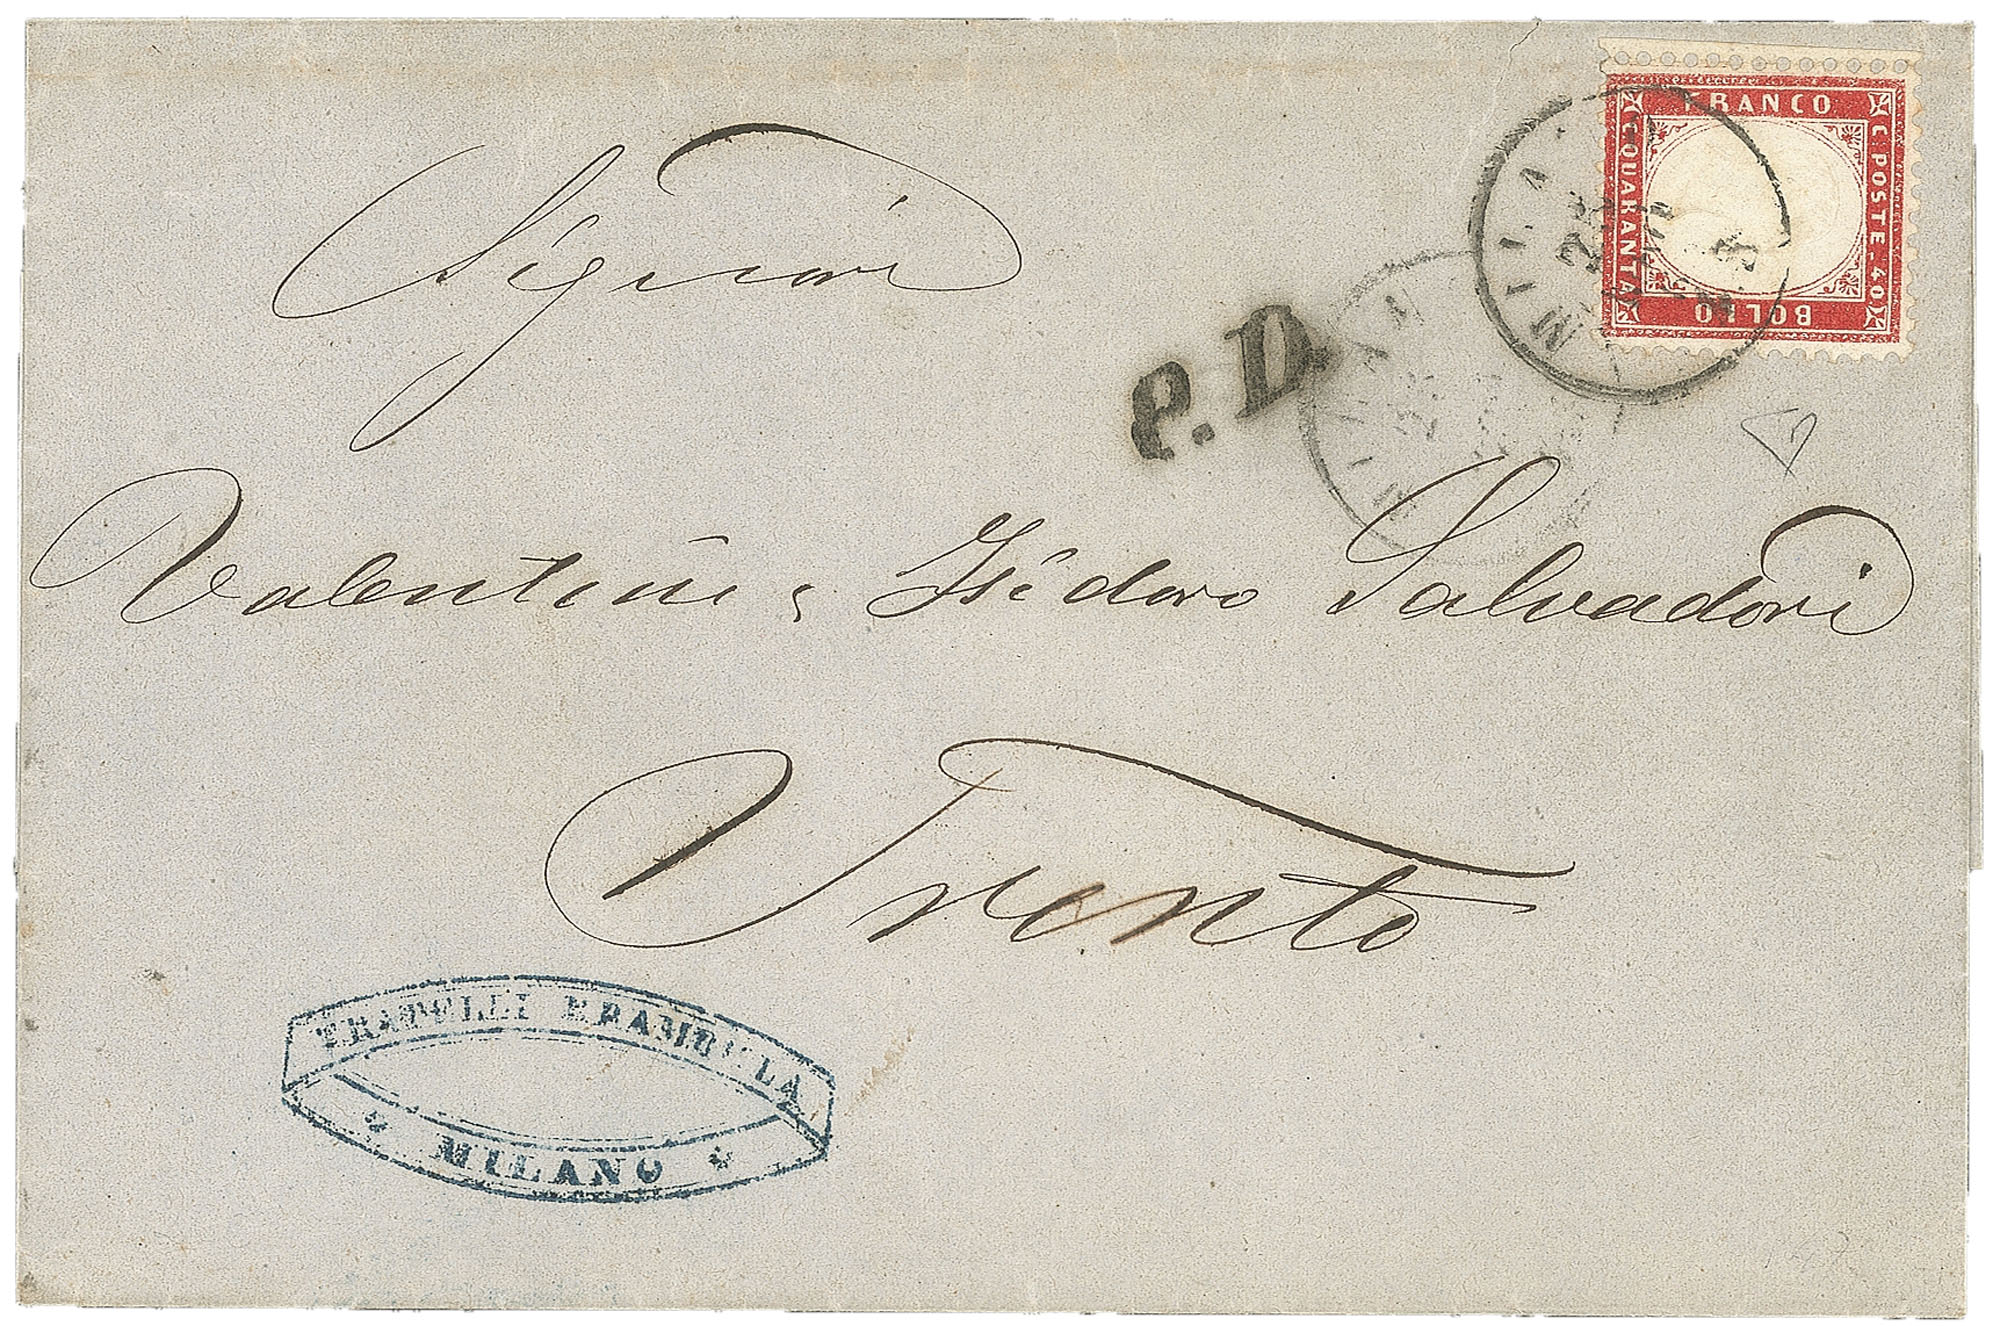 FRANCO
C. POSTE. 40
BOLLO
C. QUARANTA
MILANO
P.D.
Signori
Valentini & Isidoro Salvadori
Trento
FRATELLI BRAMBILLA
MILANO